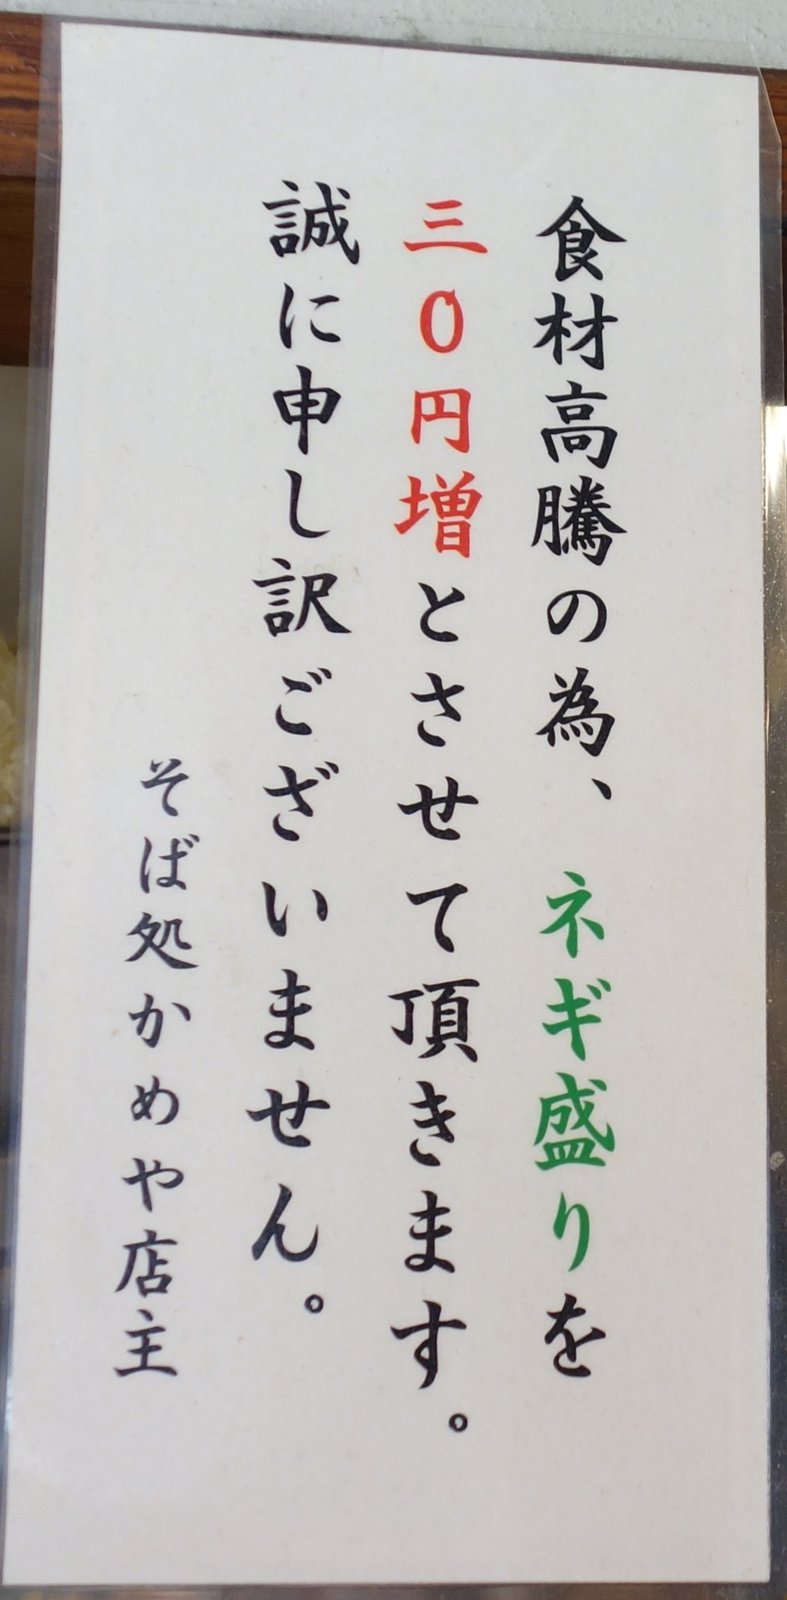 食材高騰の為、ネギ盛りを
三0円増とさせて頂きます。
誠に申し訳ございません。
そば処かめや店主